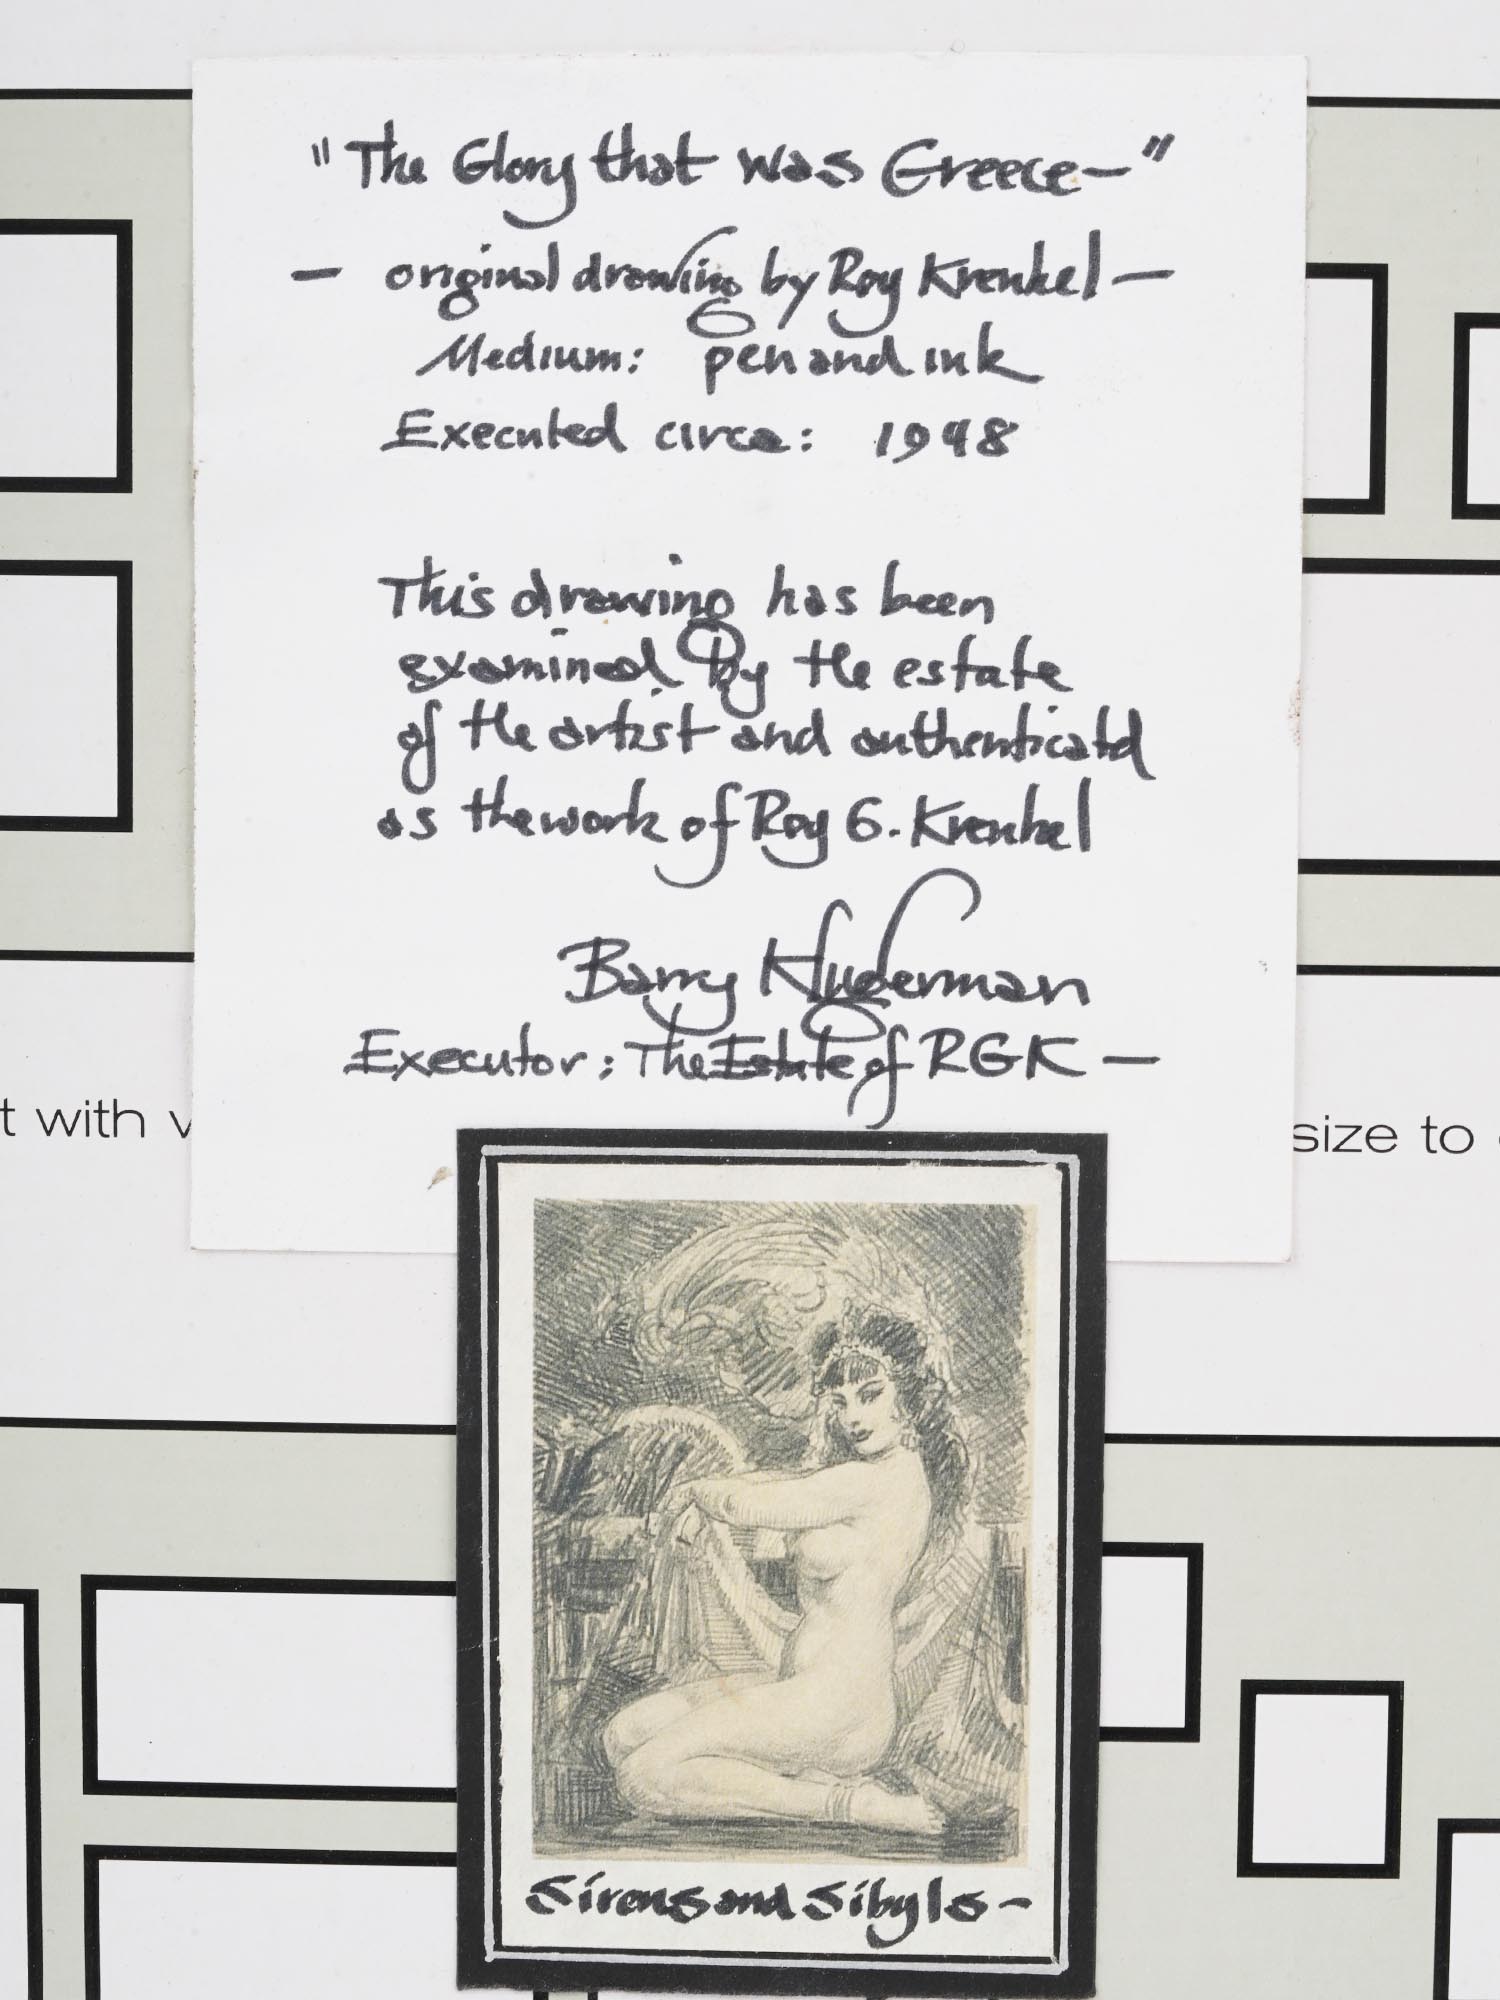 "The Glory that was Greece—"
— original drawing by Roy Krenkel —
Medium: pen and ink
Executed circa: 1948
This drawing has been
examined by the estate
of the artist and authenticatd
as the work of Roy G. Krenkel
Barry Kluderman
Executor: The Estate of RGK —
t with
size to
Sirens and Sibyls —